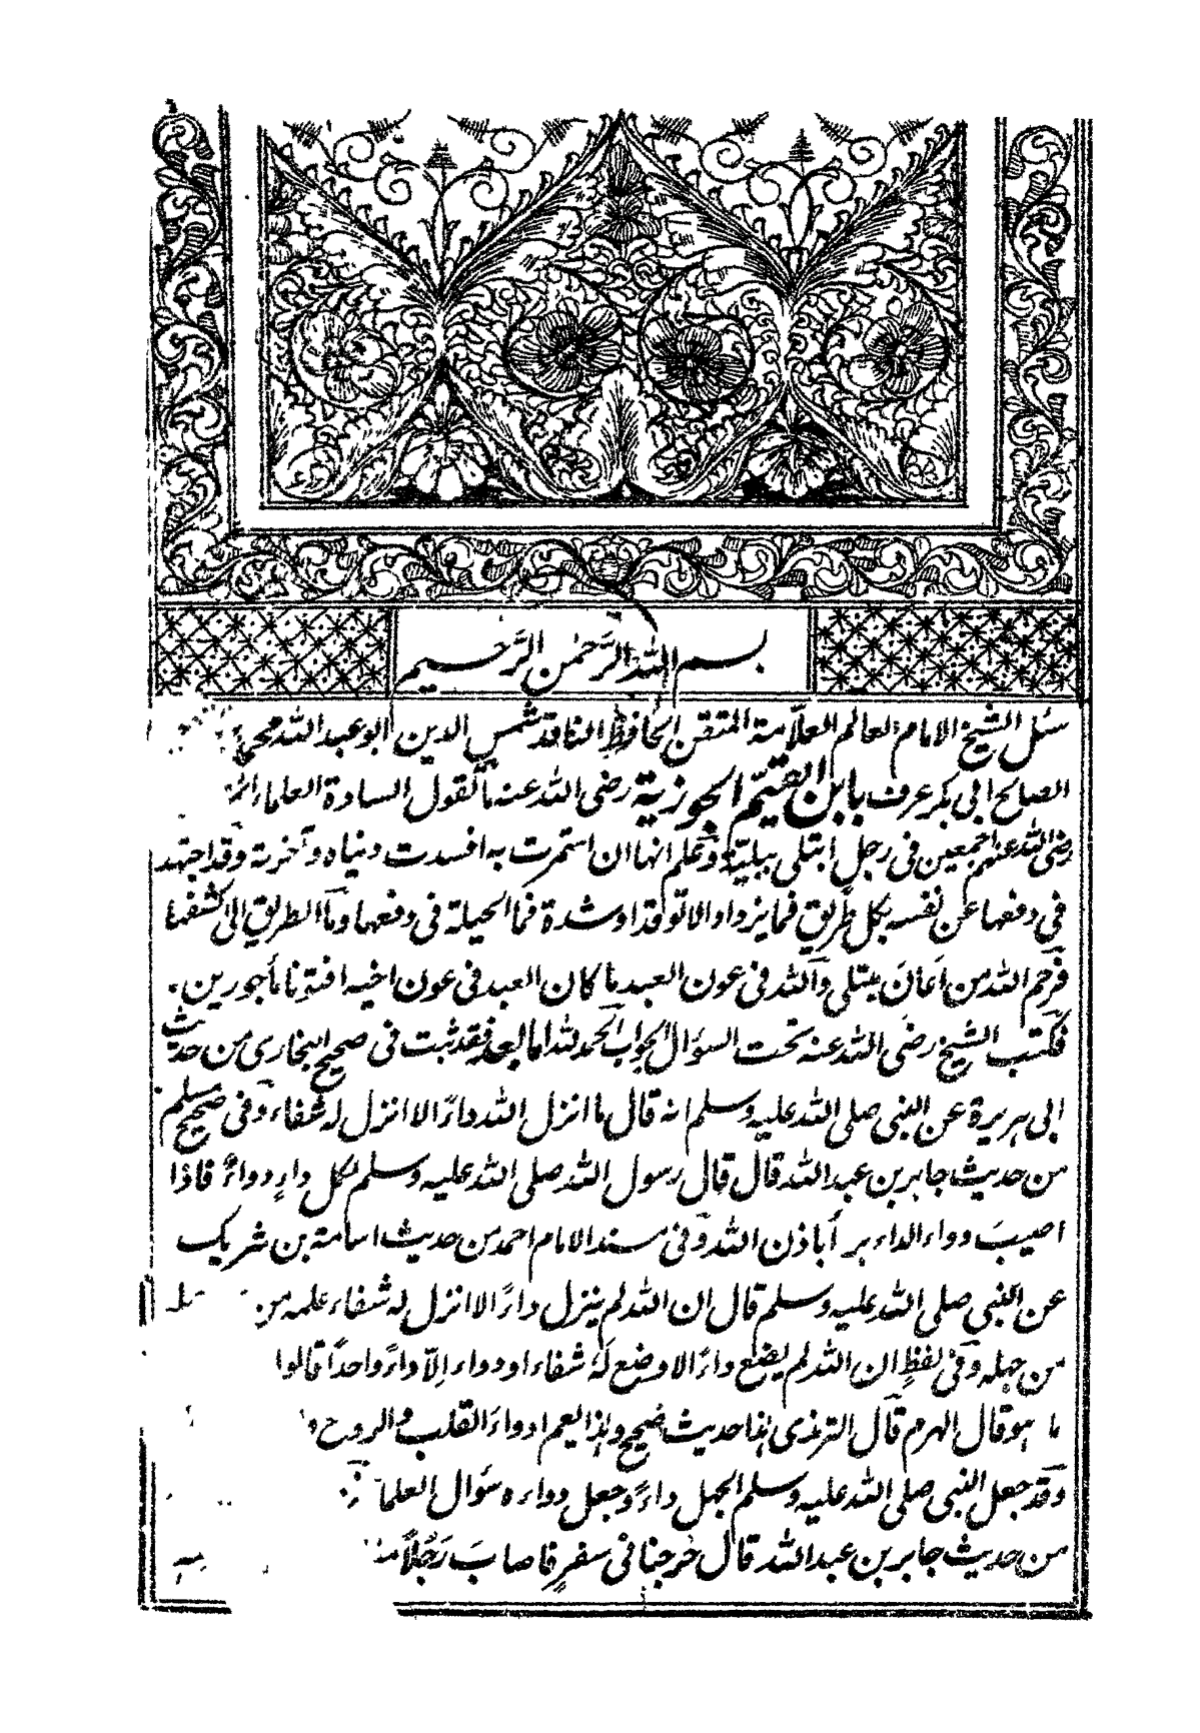 بسم الله الرَّحمٰن الرَّحيم
سئل الشيخ الامام العالم العلّامة المتقن الحافظ الناقد شمس الدين ابو عبد الله محمد
الصالح ابى بكر عرف بابن القيّم الجوزية رضى الله عنه ما تقول السادة العلماء ائمة
رضى الله عنهم اجمعين فى رجل ابتلى ببليّة وعلم انها ان استمرت به افسدت دنياه وآخرته وقد اجتهد
فى دفعها عن نفسه بكل طريق فما يزداد الا توقدا وشدة فما الحيلة فى دفعها وما الطريق الى كشفها
فرحم الله من اَعَانَ مبتلى والله فى عون العبد ما كان العبد فى عون اخيه افتونا مأجورين.
فكتب الشيخ رضى الله عنه تحت السؤال الجواب الحمد لله اما بعد فقد ثبت فى صحيح البخارى من حديث
ابى هريرة عن النبى صلى الله عليه وسلم انه قال ما انزل الله داءً الا انزل له شفاء وفى صحيح مسلم
من حديث جابر بن عبد الله قال قال رسول الله صلى الله عليه وسلم لكل داءٍ دواءٌ فاذا
اصيبَ دواء الداء برأ باذن الله وفى مسند الامام احمد من حديث اسامة بن شريك
عن النبى صلى الله عليه وسلم قال ان الله لم ينزل داءً الا انزل له شفاء علمه من
من جهله وفى لفظٍ ان الله لم يضع داءً الا وضع لَهُ شفاء او دواء اِلّا داءً واحداً قالوا
ما هو قال الهرم قال الترمذى هذا حديث صحيح وهذا يعم ادواءَ القلب والروح
وقد جعل النبى صلى الله عليه وسلم الجهل داءً وجعل دواءه سؤال العلما
من حديث جابر بن عبد الله قال خرجنا فى سفرٍ فاصابَ رَجُلاً منا